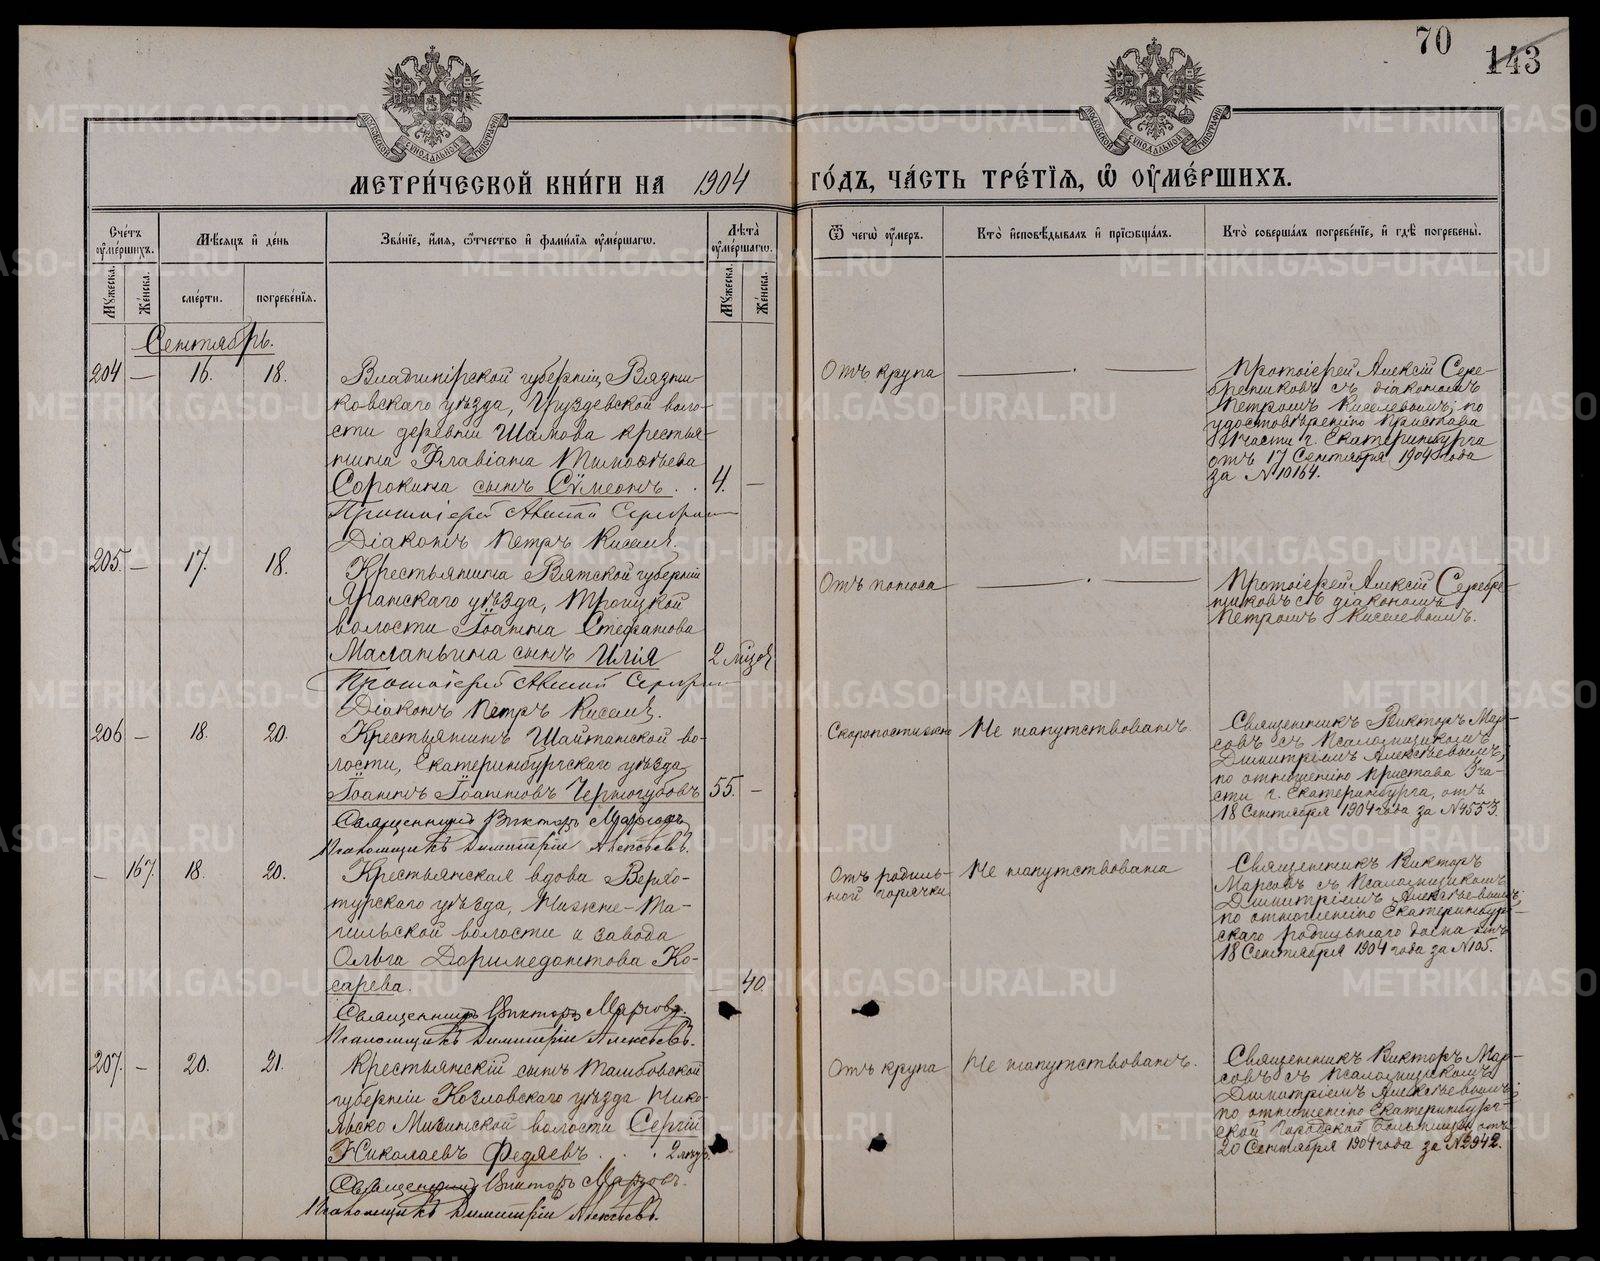 70
143
МОСКОВСКОЙ СѴНОДАЛЬНОЙ ТИПОГРАФІИ
МОСКОВСКОЙ СѴНОДАЛЬНОЙ ТИПОГРАФІИ
МЕТРИ́ЧЕСКОЙ КНИ́ГИ НА 1904 ГО́ДЪ, ЧА́СТЬ ТРЕ́ТІѦ, Ѿ ОУ҆МЕ́РШИХЪ.
Сче́тъ оу҆ме́ршихъ.
Мѣ́сяцъ и҆ де́нь
Зва́нїе, и҆́мя, ѻ҆́тчество и҆ фами́лїя оу҆ме́ршагѡ.
Лѣ́та оу҆ме́ршагѡ.
Ѿ чегѡ̀ оу҆́меръ.
Кто̀ и҆сповѣ́дывалъ и҆ прїѡбща́лъ.
Кто̀ соверша́лъ погребе́нїе, и҆ гдѣ̀ погребены̀.
Мꙋ́жеска.
Же́нска.
сме́рти.
погребе́нїя.
Мꙋ́жеска.
Же́нска.
Сентябрь.
204 — 16. 18.
Владимірской губерніи Вязни-
ковскаго уѣзда, Груздевской воло-
сти деревни Шалова крестья-
нина Флавіана Тимоѳѣева
Сорокина сынъ Сѷмеонъ. . 4. —
Протоіерей Алексій Серебрен
Діаконъ Петръ Киселевъ.
Отъ крупа
Протоіерей Алексій Сере-
бренниковъ съ діакономъ
Петромъ Киселевымъ; по
удостовѣренію Пристава
части г. Екатеринбурга
отъ 17 Сентября 1904 года
за № 10164.
205. — 17. 18.
Крестьянина Вятской губерніи
Яранскаго уѣзда, Троицкой
волости Іоанна Стефанова
Маланьина сынъ Илія 2 мѣс
Протоіерей Алексій Серебрен
Діаконъ Петръ Киселевъ.
Отъ поноса
Протоіерей Алексій Серебре-
нниковъ съ діакономъ
Петромъ Киселевымъ.
206 — 18. 20.
Крестьянинъ Шайтанской во-
лости, Екатеринбургскаго уѣзда
Іоаннъ Іоанновъ Черногубовъ 55. —
Священникъ Викторъ Марсовъ
Псаломщикъ Димитрій Алексѣевъ.
Скоропостижно
Не напутствованъ.
Священникъ Викторъ Мар-
совъ съ Псаломщикомъ
Димитріемъ Алексѣевымъ;
по отношенію Пристава 3 ча-
сти г. Екатеринбурга, отъ
18 Сентября 1904 года за № 4553.
— 167. 18. 20.
Крестьянская вдова Верхо-
турскаго уѣзда, Нижне-Та-
гильской волости и завода
Ольга Доримедонтова Ко-
сарева. — 40.
Священникъ Викторъ Марсовъ.
Псаломщикъ Димитрій Алексѣевъ.
Отъ родиль-
ной горячки
Не напутствована
Священникъ Викторъ
Марсовъ съ Псаломщикомъ
Димитріемъ Алексѣевымъ;
по отношенію Екатеринбург-
скаго родильнаго дома отъ
18 Сентября 1904 года за № 105.
207. — 20. 21.
Крестьянскій сынъ Тамбовской
губерніи Козловскаго уѣзда Нико-
льско волости Сергій
Николаевъ Федяевъ . . . 2 мѣс.
Священникъ Викторъ Марсовъ.
Псаломщикъ Димитрій Алексѣевъ.
Отъ крупа
Не напутствованъ.
Священникъ Викторъ Мар-
совъ съ Псаломщикомъ
Димитріемъ Алексѣевымъ;
по отношенію Екатеринбург-
ской Городской Больницы отъ
20 Сентября 1904 года за № 2942.
METRIKI.GASO-URAL.RU